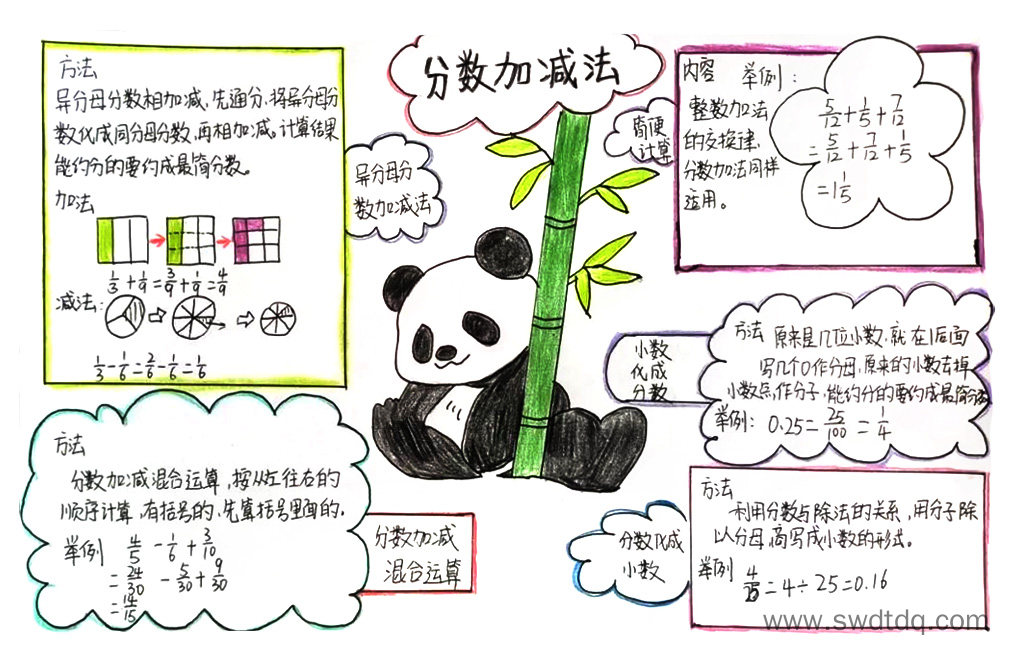 分数加减法
方法
异分母分数相加减,先通分,将异分母分
数化成同分母分数,再相加减。计算结果
能约分的要约成最简分数。
加法
1/3+1/9=3/9+1/9=4/9
减法:
1/3-1/6=2/6-1/6=1/6
异分母分
数加减法
简便
计算
内容 举例:
整数加法
的交换律,
分数加法同样
适用。
5/12+1/5+7/12
=5/12+7/12+1/5
=1 1/5
小数
化成
分数
方法 原来是几位小数,就在1后面
写几个0作分母,原来的小数去掉
小数点,作分子,能约分的要约成最简分数
举例: 0.25=25/100=1/4
方法
分数加减混合运算,按从左往右的
顺序计算,有括号的,先算括号里面的。
举例 4/5-1/6+3/10
=24/30-5/30+9/30
=14/15
分数加减
混合运算
分数化成
小数
方法
利用分数与除法的关系,用分子除
以分母,商写成小数的形式。
举例 4/25=4÷25=0.16
www.swdtdq.com